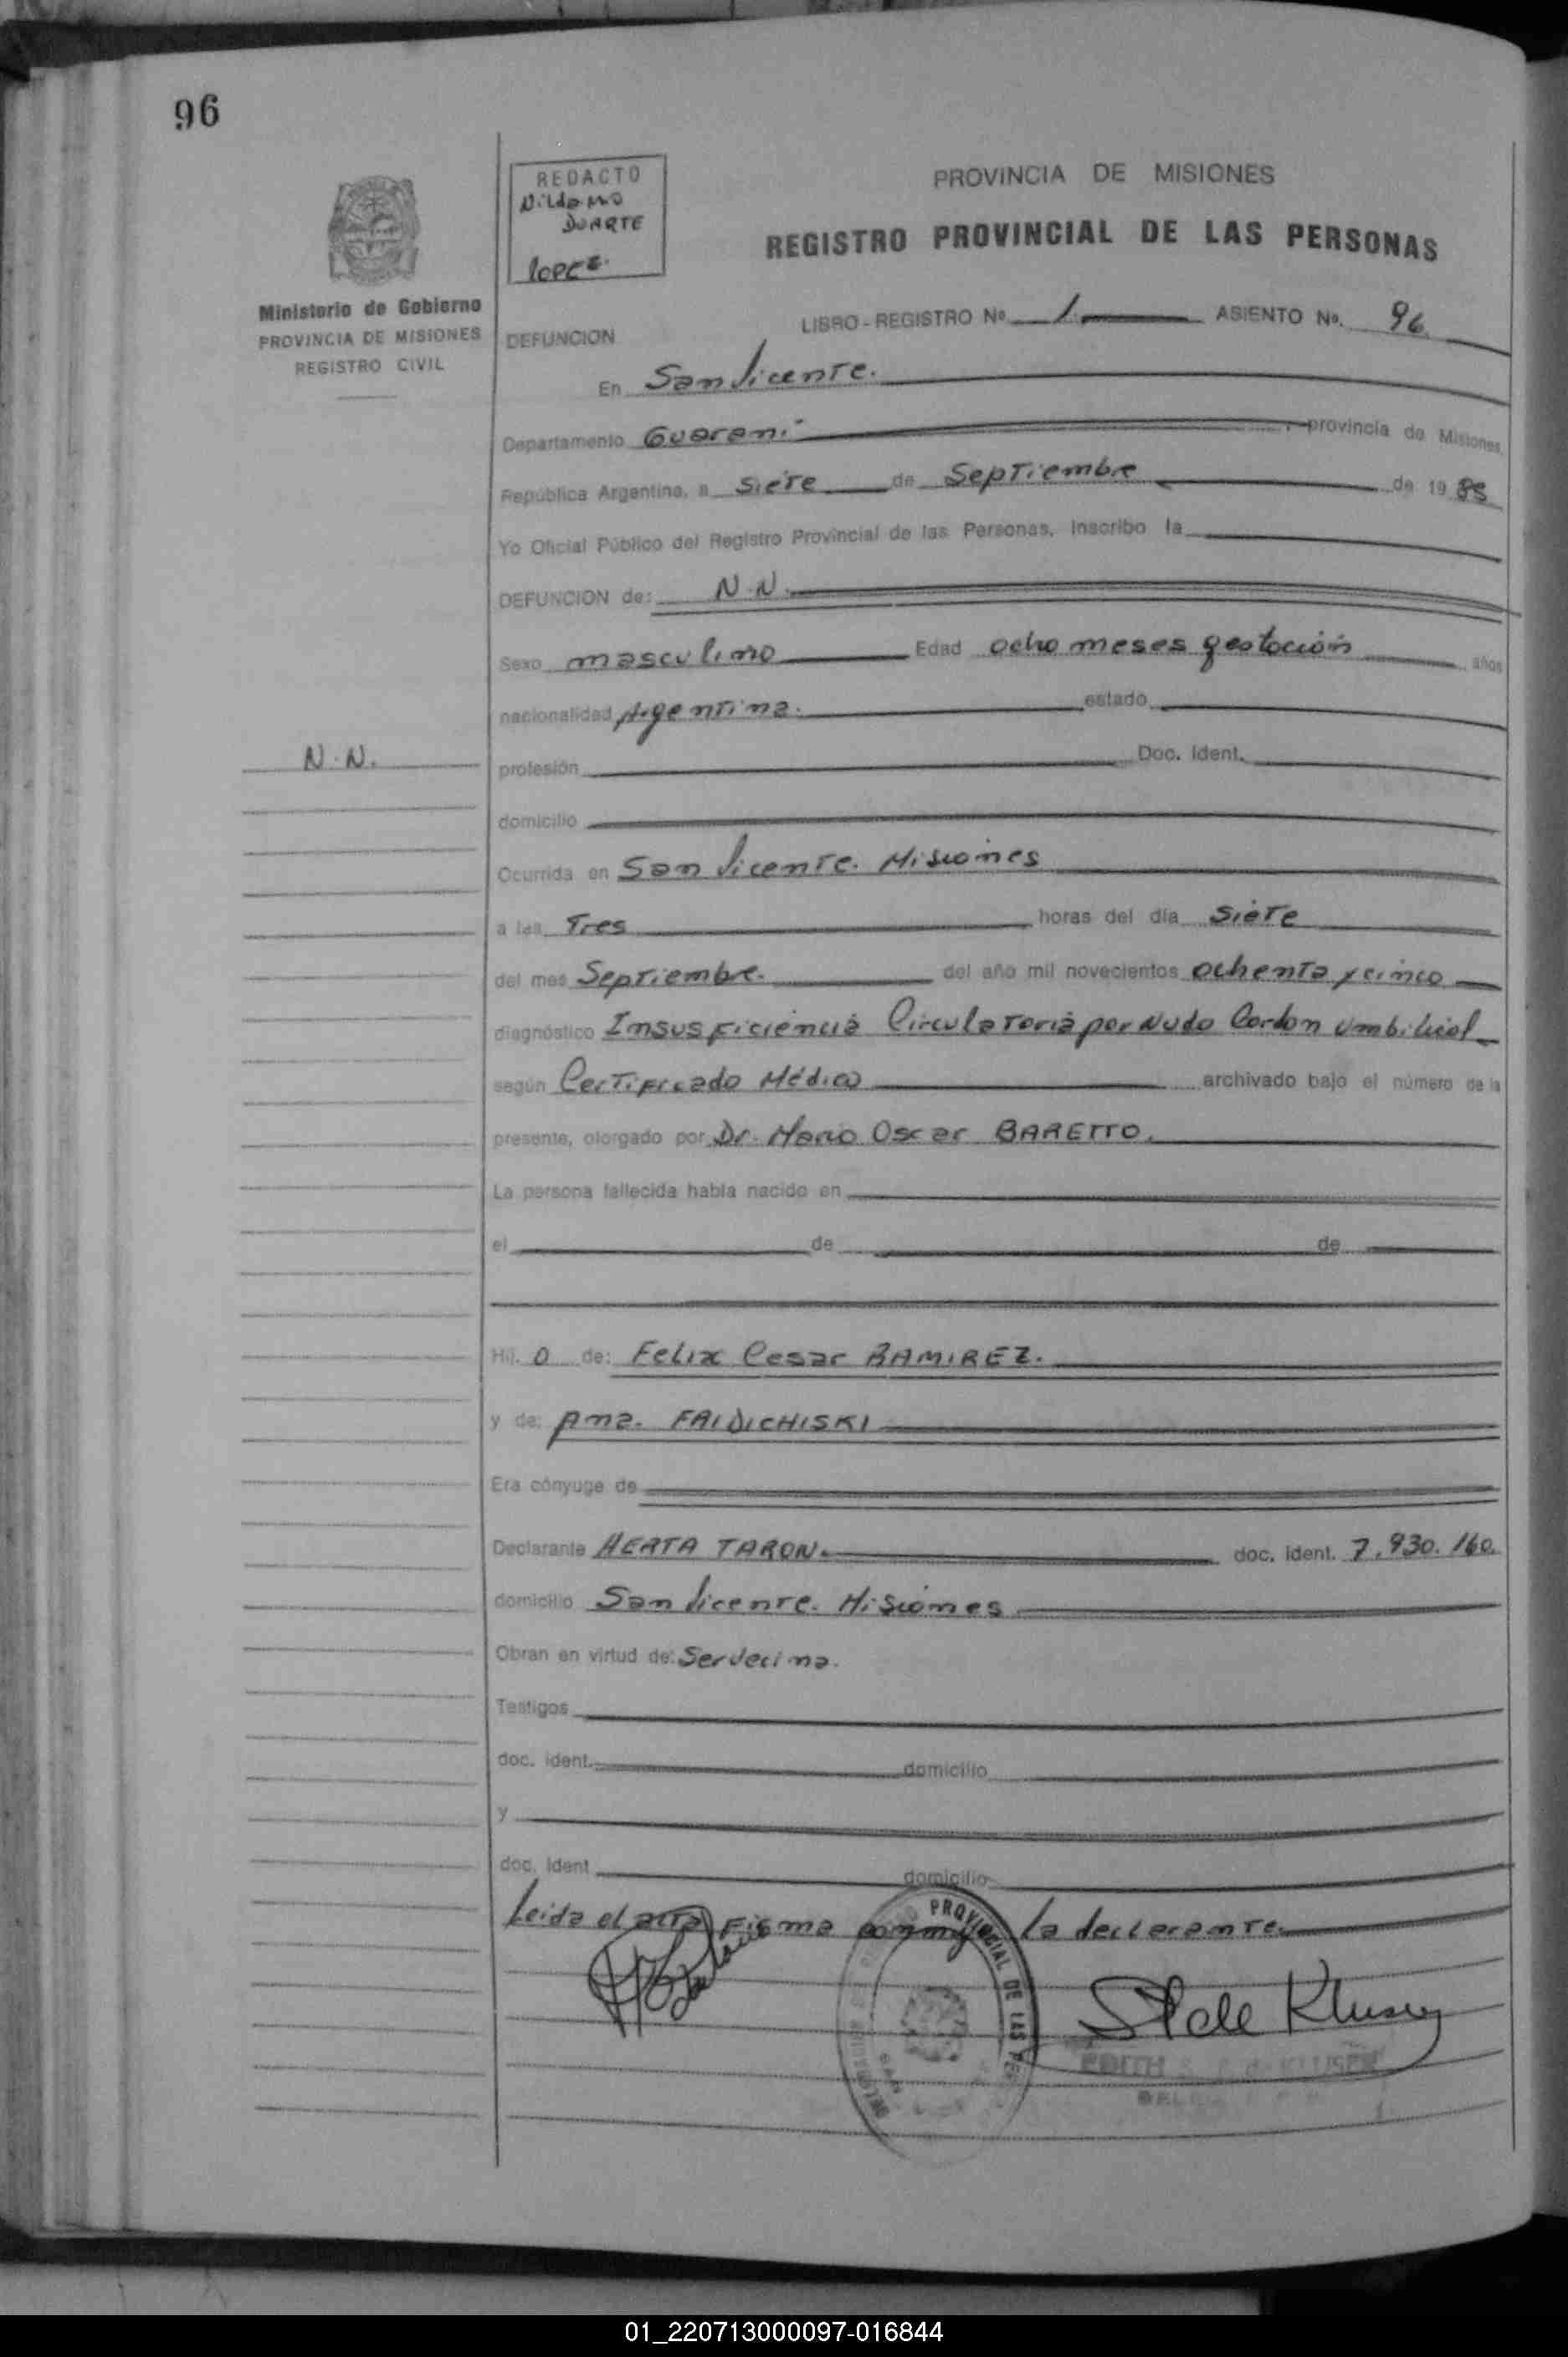 96
REDACTO
Nildomo
DUARTE
LOPEZ.
PROVINCIA DE MISIONES
REGISTRO PROVINCIAL DE LAS PERSONAS
Ministerio de Gobierno
PROVINCIA DE MISIONES
REGISTRO CIVIL
LIBRO-REGISTRO Nº 1 ASIENTO Nº. 96
DEFUNCION
En San Vicente.
Departamento Guarani provincia de Misiones,
República Argentina, a Siete de Septiembre de 19 85
Yo Oficial Público del Registro Provincial de las Personas, inscribo la
DEFUNCION de: N.N.
Sexo masculino Edad ocho meses gestación años
nacionalidad Argentina. estado
N.N.
profesión Doc. Ident.
domicilio
Ocurrida en San Vicente. Misiones
a las Tres horas del día Siete
del mes Septiembre. del año mil novecientos ochenta y cinco
diagnóstico Insusficiencia Circulatoria por Nudo Cordon Umbilical
según Certificado Médico archivado bajo el número de la
presente, otorgado por Dr. Mario Oscar BARETTO.
La persona fallecida había nacido en
el de de
Hij. o de: Felix Cesar RAMIREZ.
y de: Ana. FAIDICHISKI
Era cónyuge de
Declarante HERTA TARON. doc. ident. 7.930.160.
domicilio San Vicente. Misiones
Obran en virtud de: Ser vecina.
Testigos
doc. ident. domicilio
y
doc. ident domicilio
Leida el acta firma conmigo la declarante.
PROVINCIAL DE LAS PER
St de Kluser
EDITH S. de KLUSER
01_220713000097-016844